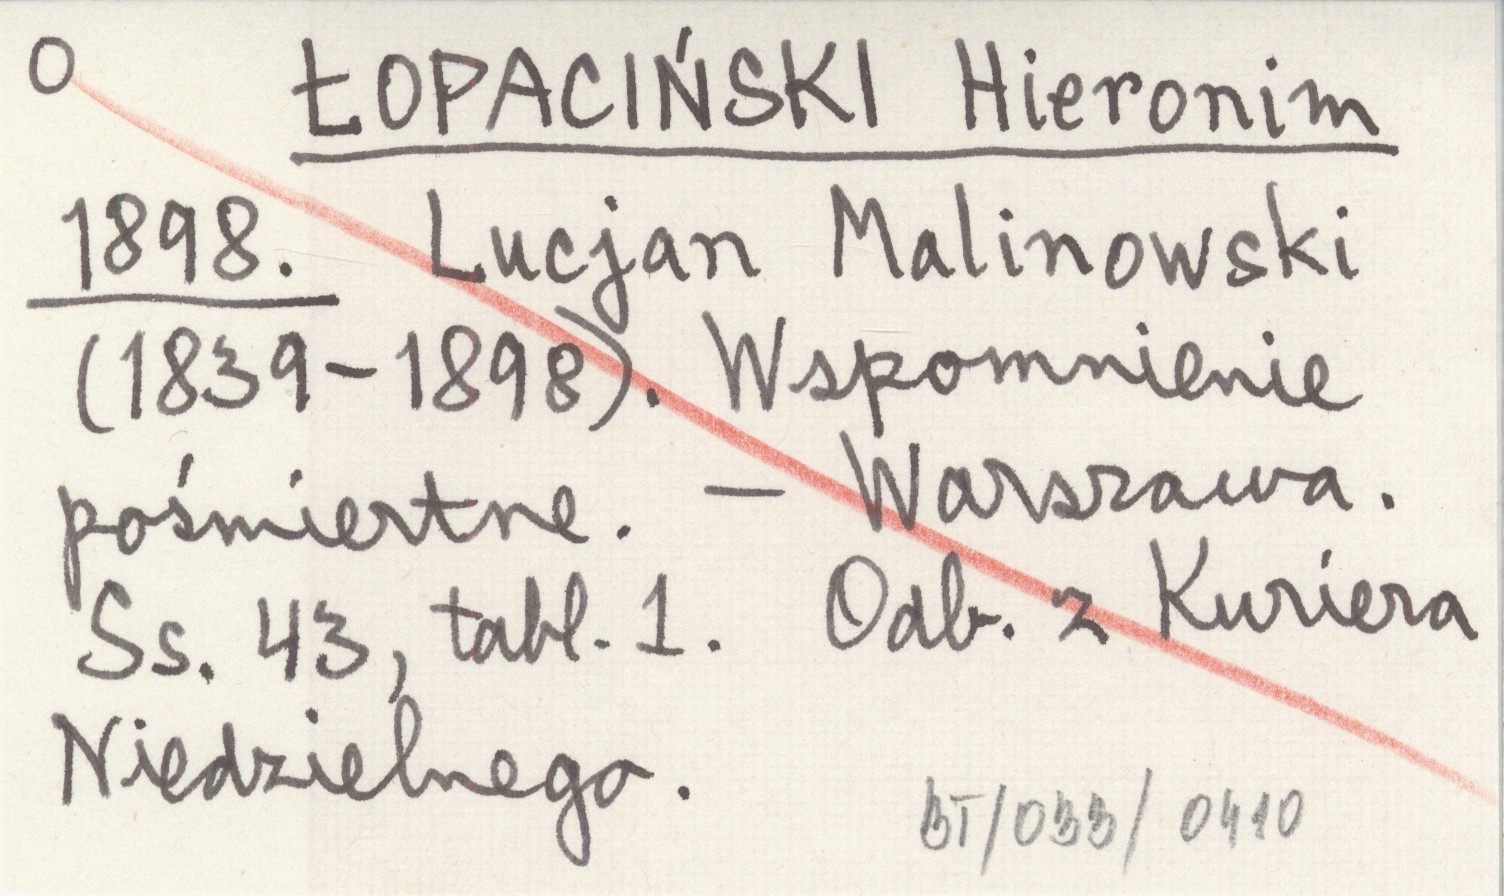 O ŁOPACIŃSKI Hieronim
1898. Lucjan Malinowski
(1839-1898). Wspomnienie
pośmiertne. — Warszawa.
Ss. 43, tabl. 1. Odb. z Kuriera
Niedzielnego.
BT/033/0410